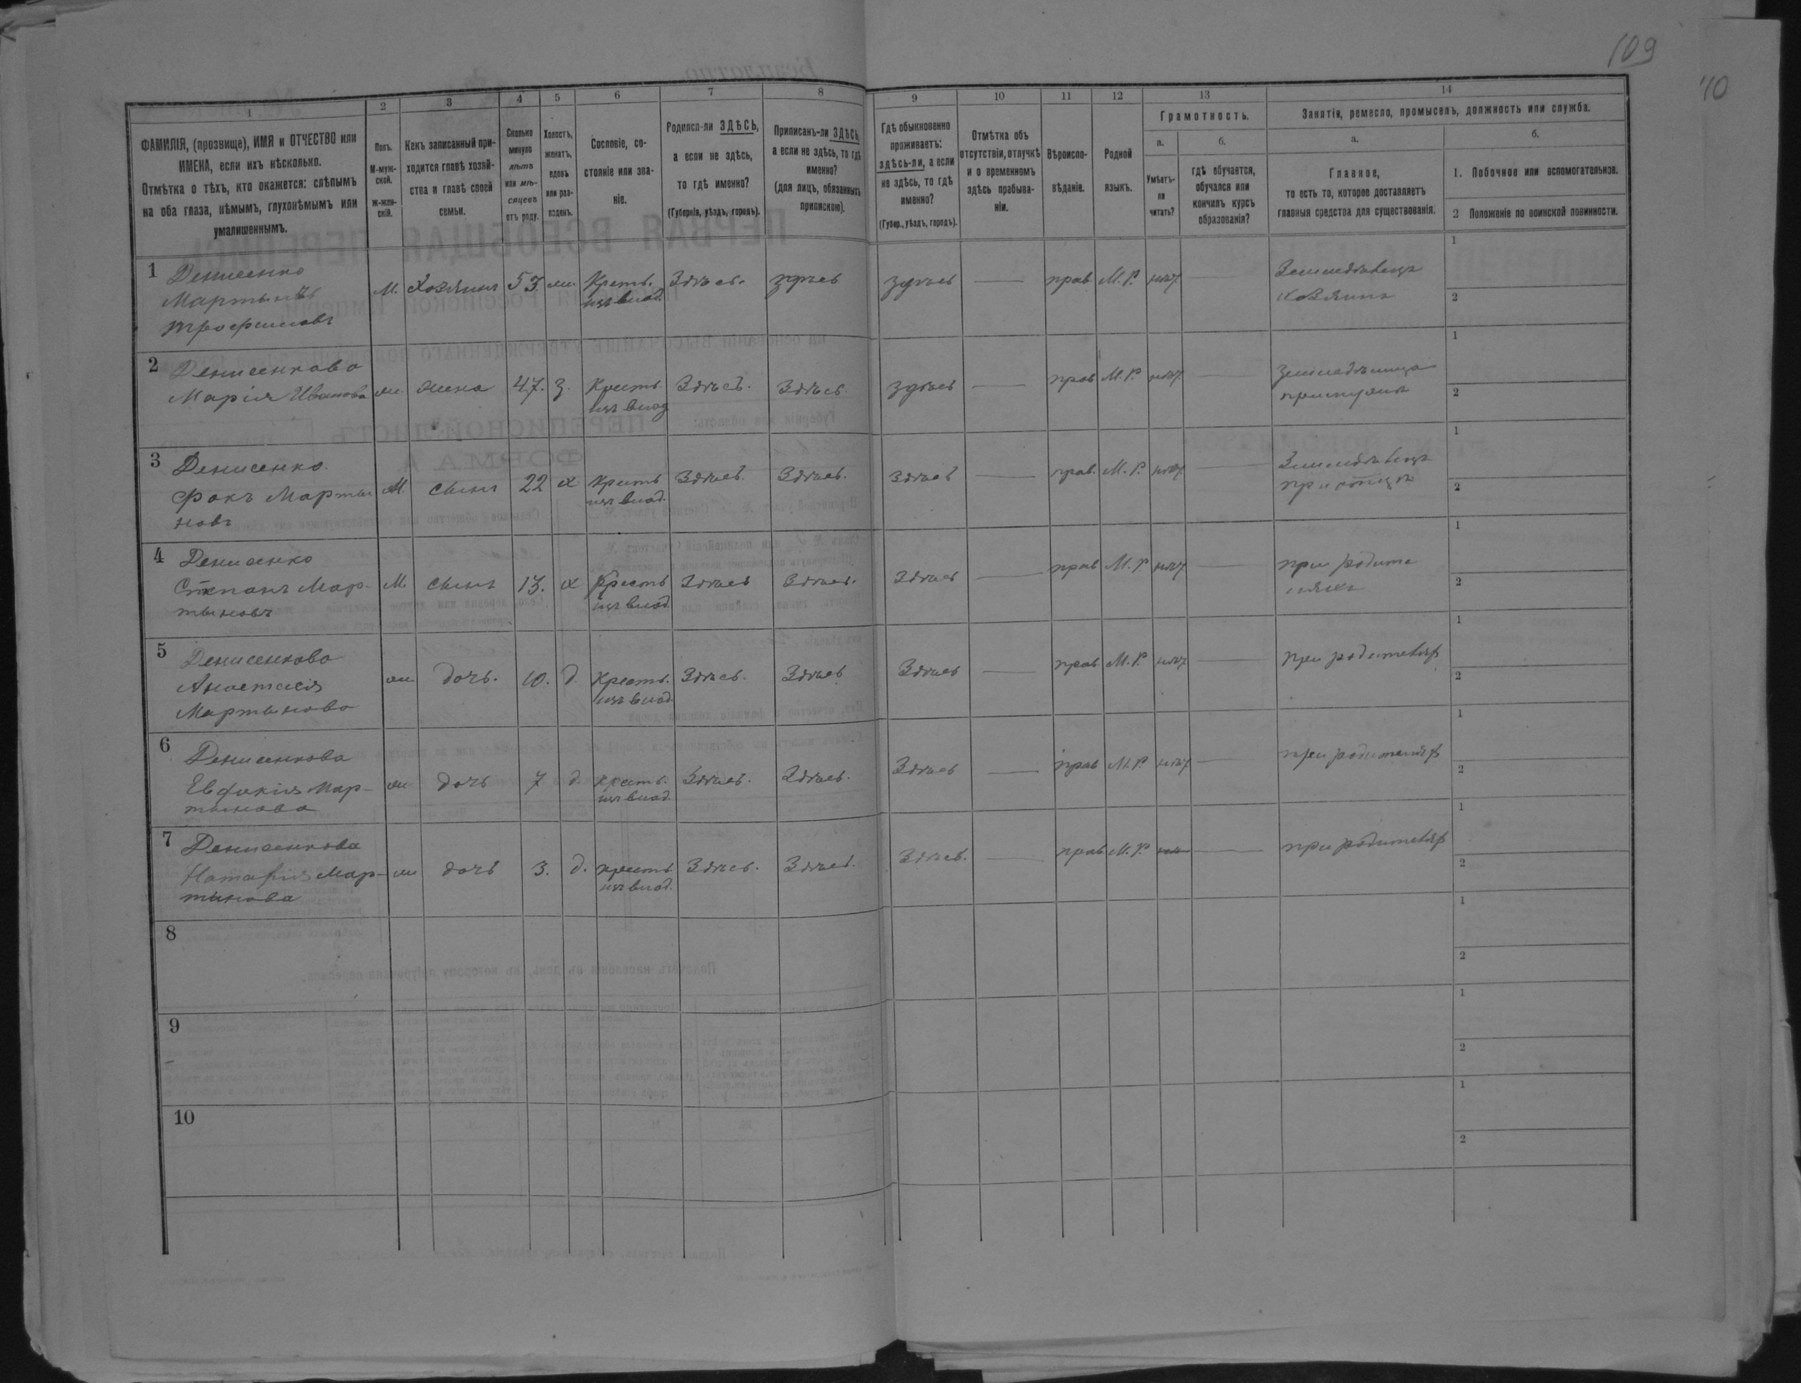 109
10
1 2 3 4 5 6 7 8 9 10 11 12 13 14
ФАМИЛІЯ, (прозвище), ИМЯ и ОТЧЕСТВО или
ИМЕНА, если ихъ нѣсколько.
Отмѣтка о тѣхъ, кто окажется: слѣпымъ
на оба глаза, нѣмымъ, глухонѣмымъ или
умалишеннымъ.
Полъ.
М-муж-
ской.
Ж-жен-
скій.
Какъ записанный при-
ходится главѣ хозяй-
ства и главѣ своей
семьи.
Сколько
минуло
лѣтъ
или мѣ-
сяцевъ
отъ роду.
Холостъ,
женатъ,
вдовъ
или раз-
веденъ.
Сословіе, со-
стояніе или зва-
ніе.
Родился-ли ЗДѢСЬ,
а если не здѣсь,
то гдѣ именно?
(Губернія, уѣздъ, городъ).
Приписанъ-ли ЗДѢСЬ,
а если не здѣсь, то гдѣ
именно?
(для лицъ, обязанныхъ
припискою).
Гдѣ обыкновенно
проживаетъ:
здѣсь-ли, а если
не здѣсь, то гдѣ
именно?
(Губер., уѣздъ, городъ).
Отмѣтка объ
отсутствіи, отлучкѣ
и о временномъ
здѣсь пребыва-
ніи.
Вѣроиспо-
вѣданіе.
Родной
языкъ.
Грамотность.
а.
Умѣетъ-
ли
читать?
б.
гдѣ обучается,
обучался или
кончилъ курсъ
образованія?
Занятія, ремесло, промыселъ, должность или служба.
а.
Главное,
то есть то, которое доставляетъ
главныя средства для существованія.
б.
1. Побочное или вспомогательное.
2 Положеніе по воинской повинности.
1 Денисенко
Мартынъ
Трофимовъ
М. Хозяинъ 53. Крестъ.
изъ влад. Здѣсь. здѣсь здѣсь — прав М. Р. нѣт — Земледѣлецъ
хозяинъ
1
2
2 Денисенкова
Марія Иванова
жена 47. З. Крестъ.
изъ влад Здѣсь. Здѣсь. здѣсь — прав М. Р. нѣт —
1
2
3 Денисенко.
Фокъ Марты
новъ
М сынъ 22 х Крестъ
изъ влад. Здѣсь. Здѣсь. Здѣсь — прав. М. Р. нѣт — Земледѣлецъ
при отцѣ
1
2
4 Денисенко
Степанъ Мар-
тыновъ
М. сынъ 13. х Крестъ
изъ влад. Здѣсь Здѣсь. Здѣсь — прав М. Р нѣт — при родите
ляхъ
1
2
5 Денисенкова
Анастасія
Мартынова
дочь. 10. д. Крестъ.
изъ влад. Здѣсь. Здѣсь Здѣсь — прав М. Р. нѣт — при родителях
1
2
6 Денисенкова
Евдокія Мар-
тынова
дочь 7 д. Крестъ.
изъ влад. Здѣсь. Здѣсь. Здѣсь — прав М. Р. нѣт — при родителях
1
2
7 Денисенкова
Наталія Мар-
тынова
дочь 3. д. Крестъ
изъ влад. Здѣсь. Здѣсь. Здѣсь. — прав М. Р. — при родителях
1
2
8
1
2
9
1
2
10
1
2